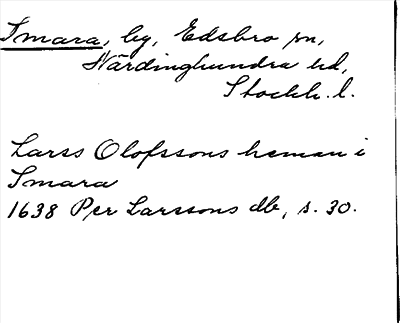 Smara, by, Edsbro sn,
Närdinghundra hd,
Stockh. l.
Larss Olofssons heman i
Smara
1638 Per Larssons db, s. 30.